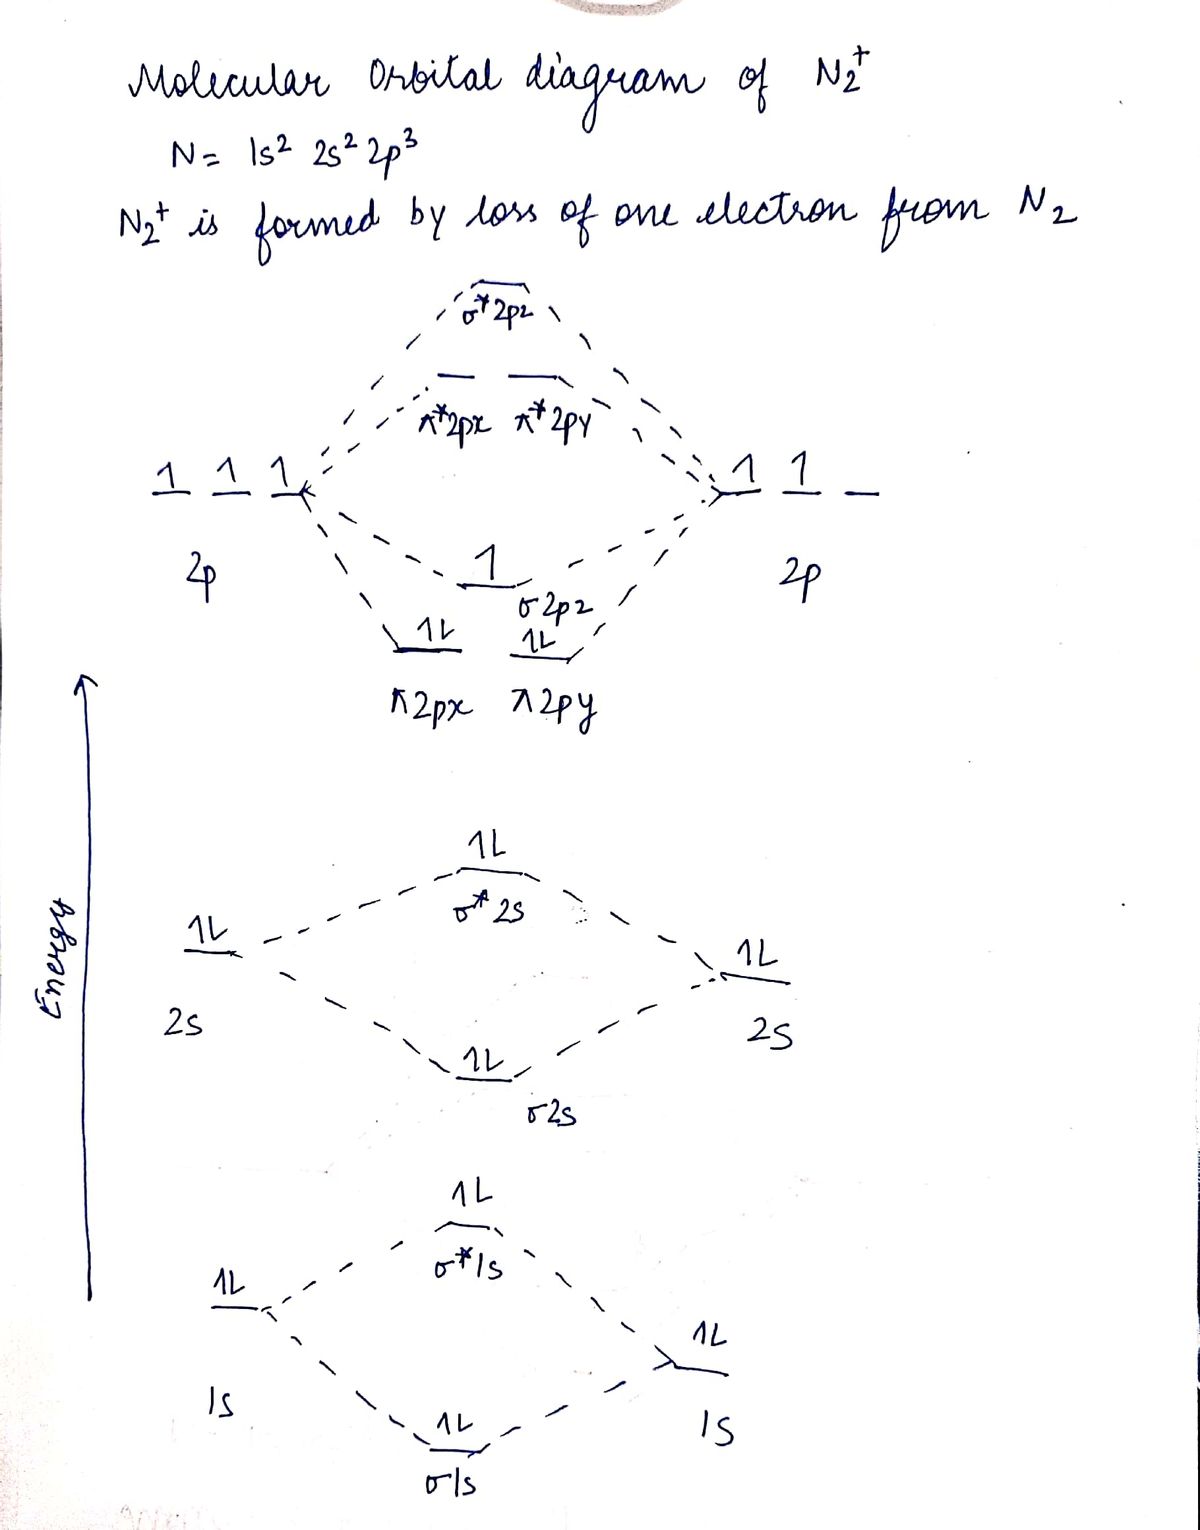 Molecular Orbital diagram of N₂⁺
N = 1s² 2s² 2p³
N₂⁺ is formed by loss of one electron from N₂
σ*2pz
π*2px π*2py
1 1 1 1 1
1
2p 2p
σ2pz
1L 1L
π2px π2py
1L
σ*2s
1L 1L
2s 2s
1L
σ2s
Energy
1L
σ*1s
1L 1L
1s 1s
1L
σ1s